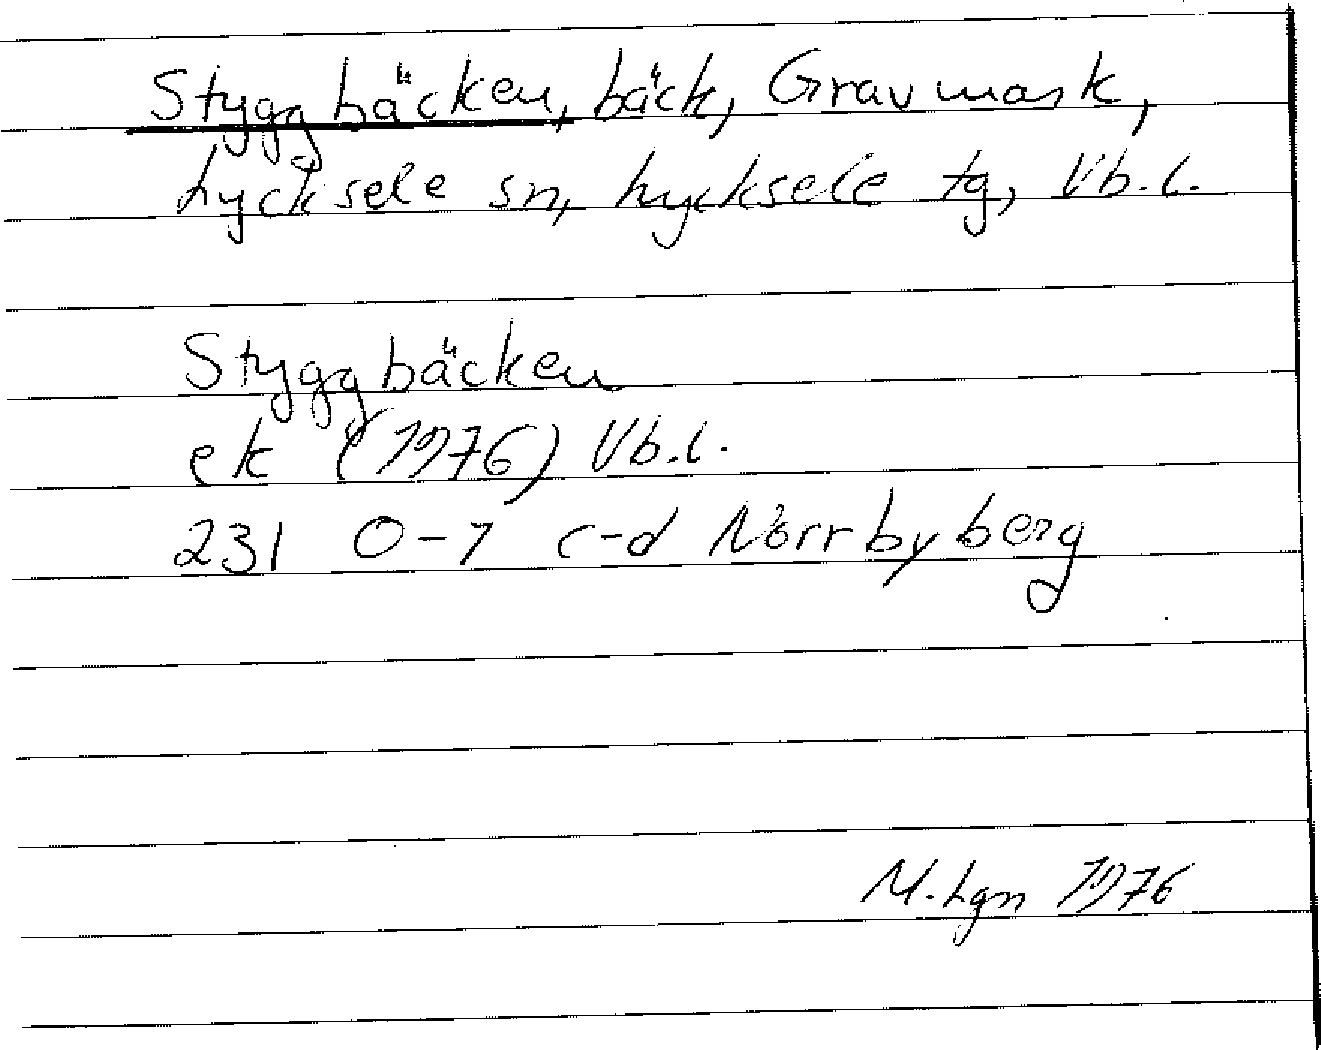 Styggbäcken, bäck, Gravmark,
Lycksele sn, Lycksele tg, Vb.l.
Styggbäcken
ek (1976) Vb.l.
231 0-1 c-d Norrbyberg
M. Lgn 1976